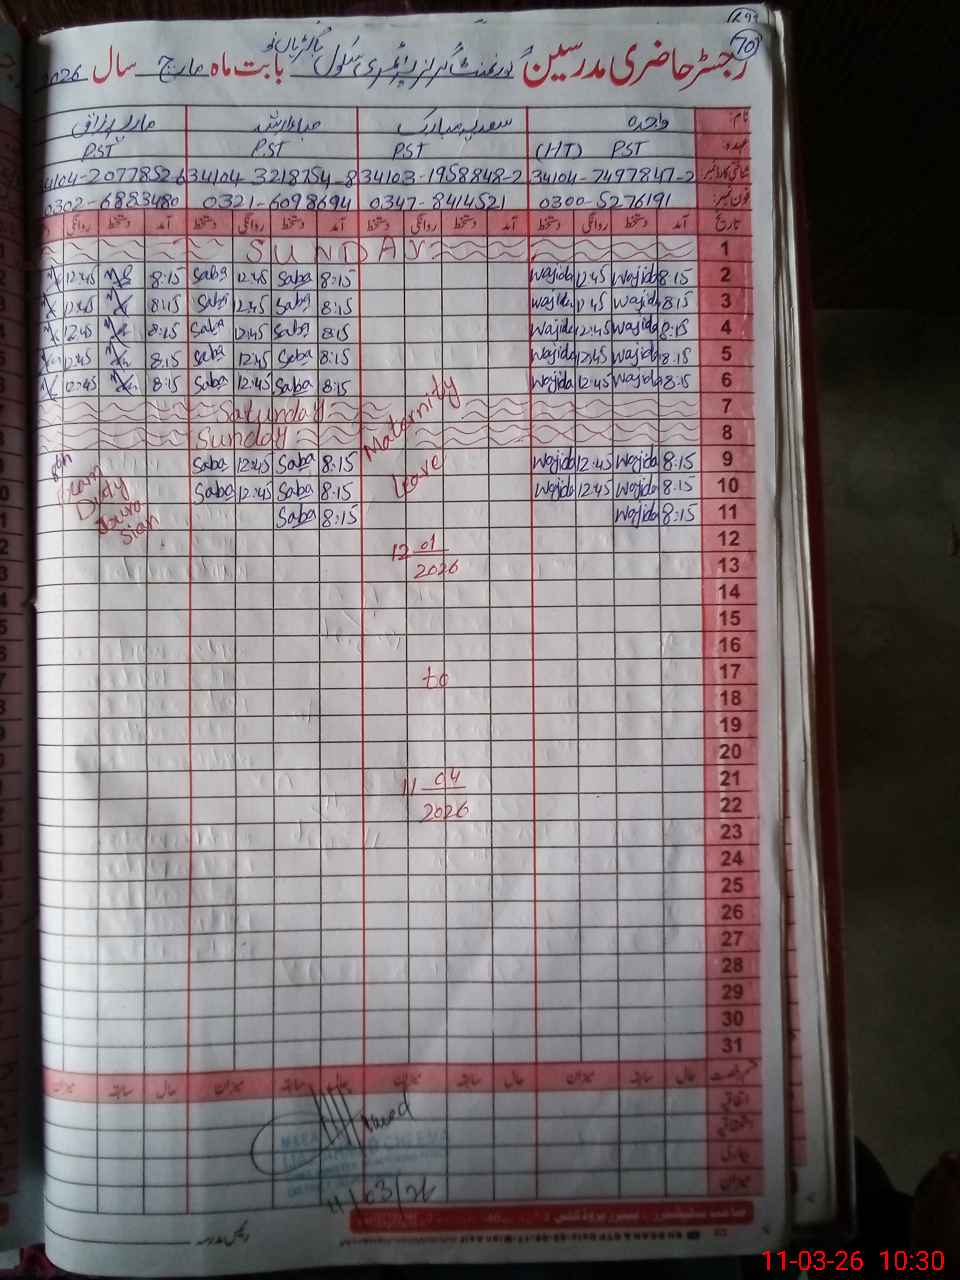 70
رجسٹر حاضری مدرسین گورنمنٹ گرلز پرائمری سکول بابت ماہ مارچ سال 2026
نام: واجدہ سعدیہ مبارک صبا وارث ماریہ رزاق
عہدہ PST (HT) PST PST PST
شناختی کارڈ نمبر 34104-7497847-2 34103-1958848-2 34104-3218754-8 34104-2077852-6
فون نمبر: 0300-5276191 0347-8414521 0321-6098694 0302-6883480
تاریخ آمد دستخط روانگی دستخط آمد دستخط روانگی دستخط آمد دستخط روانگی دستخط آمد دستخط روانگی
1 SUNDAY
2 8:15 Wajida 12:45 Wajida 8:15 Saba 12:45 Saba 8:15 12:45
3 8:15 Wajida 12:45 Wajida 8:15 Saba 12:45 Saba 8:15 12:45
4 8:15 Wajida 12:45 Wajida 8:15 Saba 12:45 Saba 8:15 12:45
5 8:15 Wajida 12:45 Wajida 8:15 Saba 12:45 Saba 8:15 12:45
6 8:15 Wajida 12:45 Wajida 8:15 Saba 12:45 Saba 8:15 12:45
7 Saturday
8 Sunday
Maternity
Leave
9 8:15 Wajida 12:45 Wajida 8:15 Saba 12:45 Saba
10 8:15 Wajida 12:45 Wajida 8:15 Saba 12:45 Saba
11 8:15 Wajida 8:15 Saba
Exam
Duty
12
12 01
2026
13
14
15
16
17 to
18
19
20
21
11 04
2026
22
23
24
25
26
27
28
29
30
31
حال سابقہ میزان حال سابقہ میزان حال سابقہ میزان حال سابقہ میزان
اتفاقی
استحقاقی
بیماری
میزان
11/03/26
رئیس مدرسہ
11-03-26 10:30